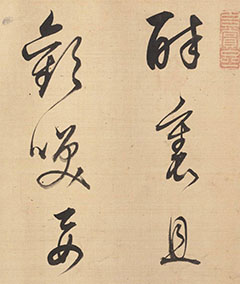 醉裏且
歡咲要